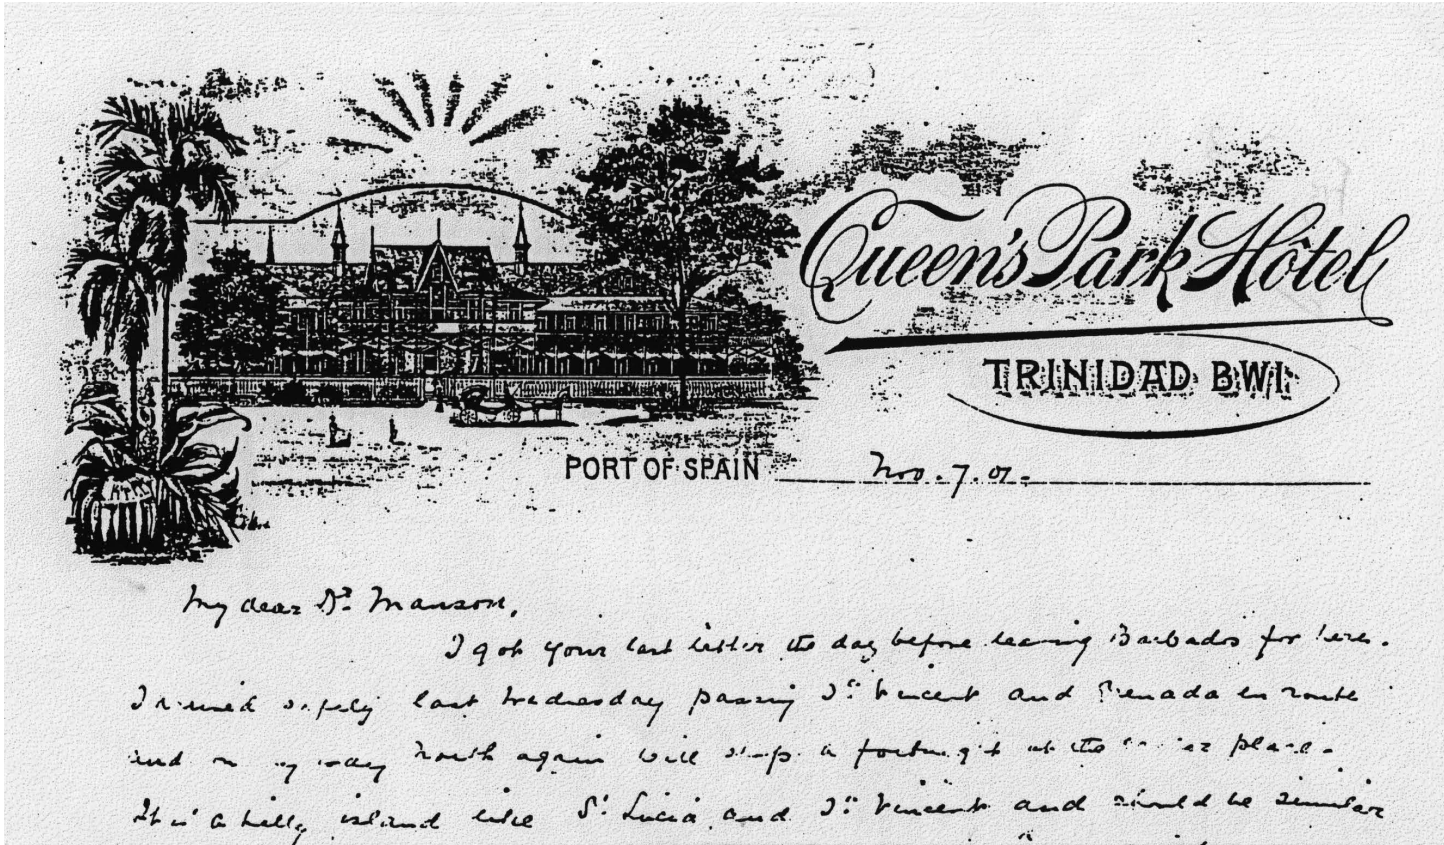 Queen's Park Hôtel
TRINIDAD BWI
PORT OF SPAIN Nov. 7. 01.
My dear Dr. Manson,
I got your last letter the day before leaving Barbados for here.
I arrived safely last Wednesday passing St. Vincent and Grenada en route
and on my way north again will stop a fortnight at the place.
It is a hilly island like St. Lucia and St. Vincent and should be similar